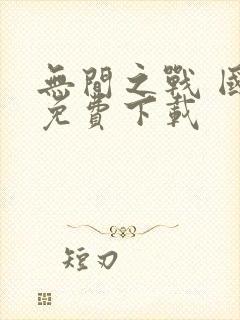 無間之戰 國
免費下載
短刃